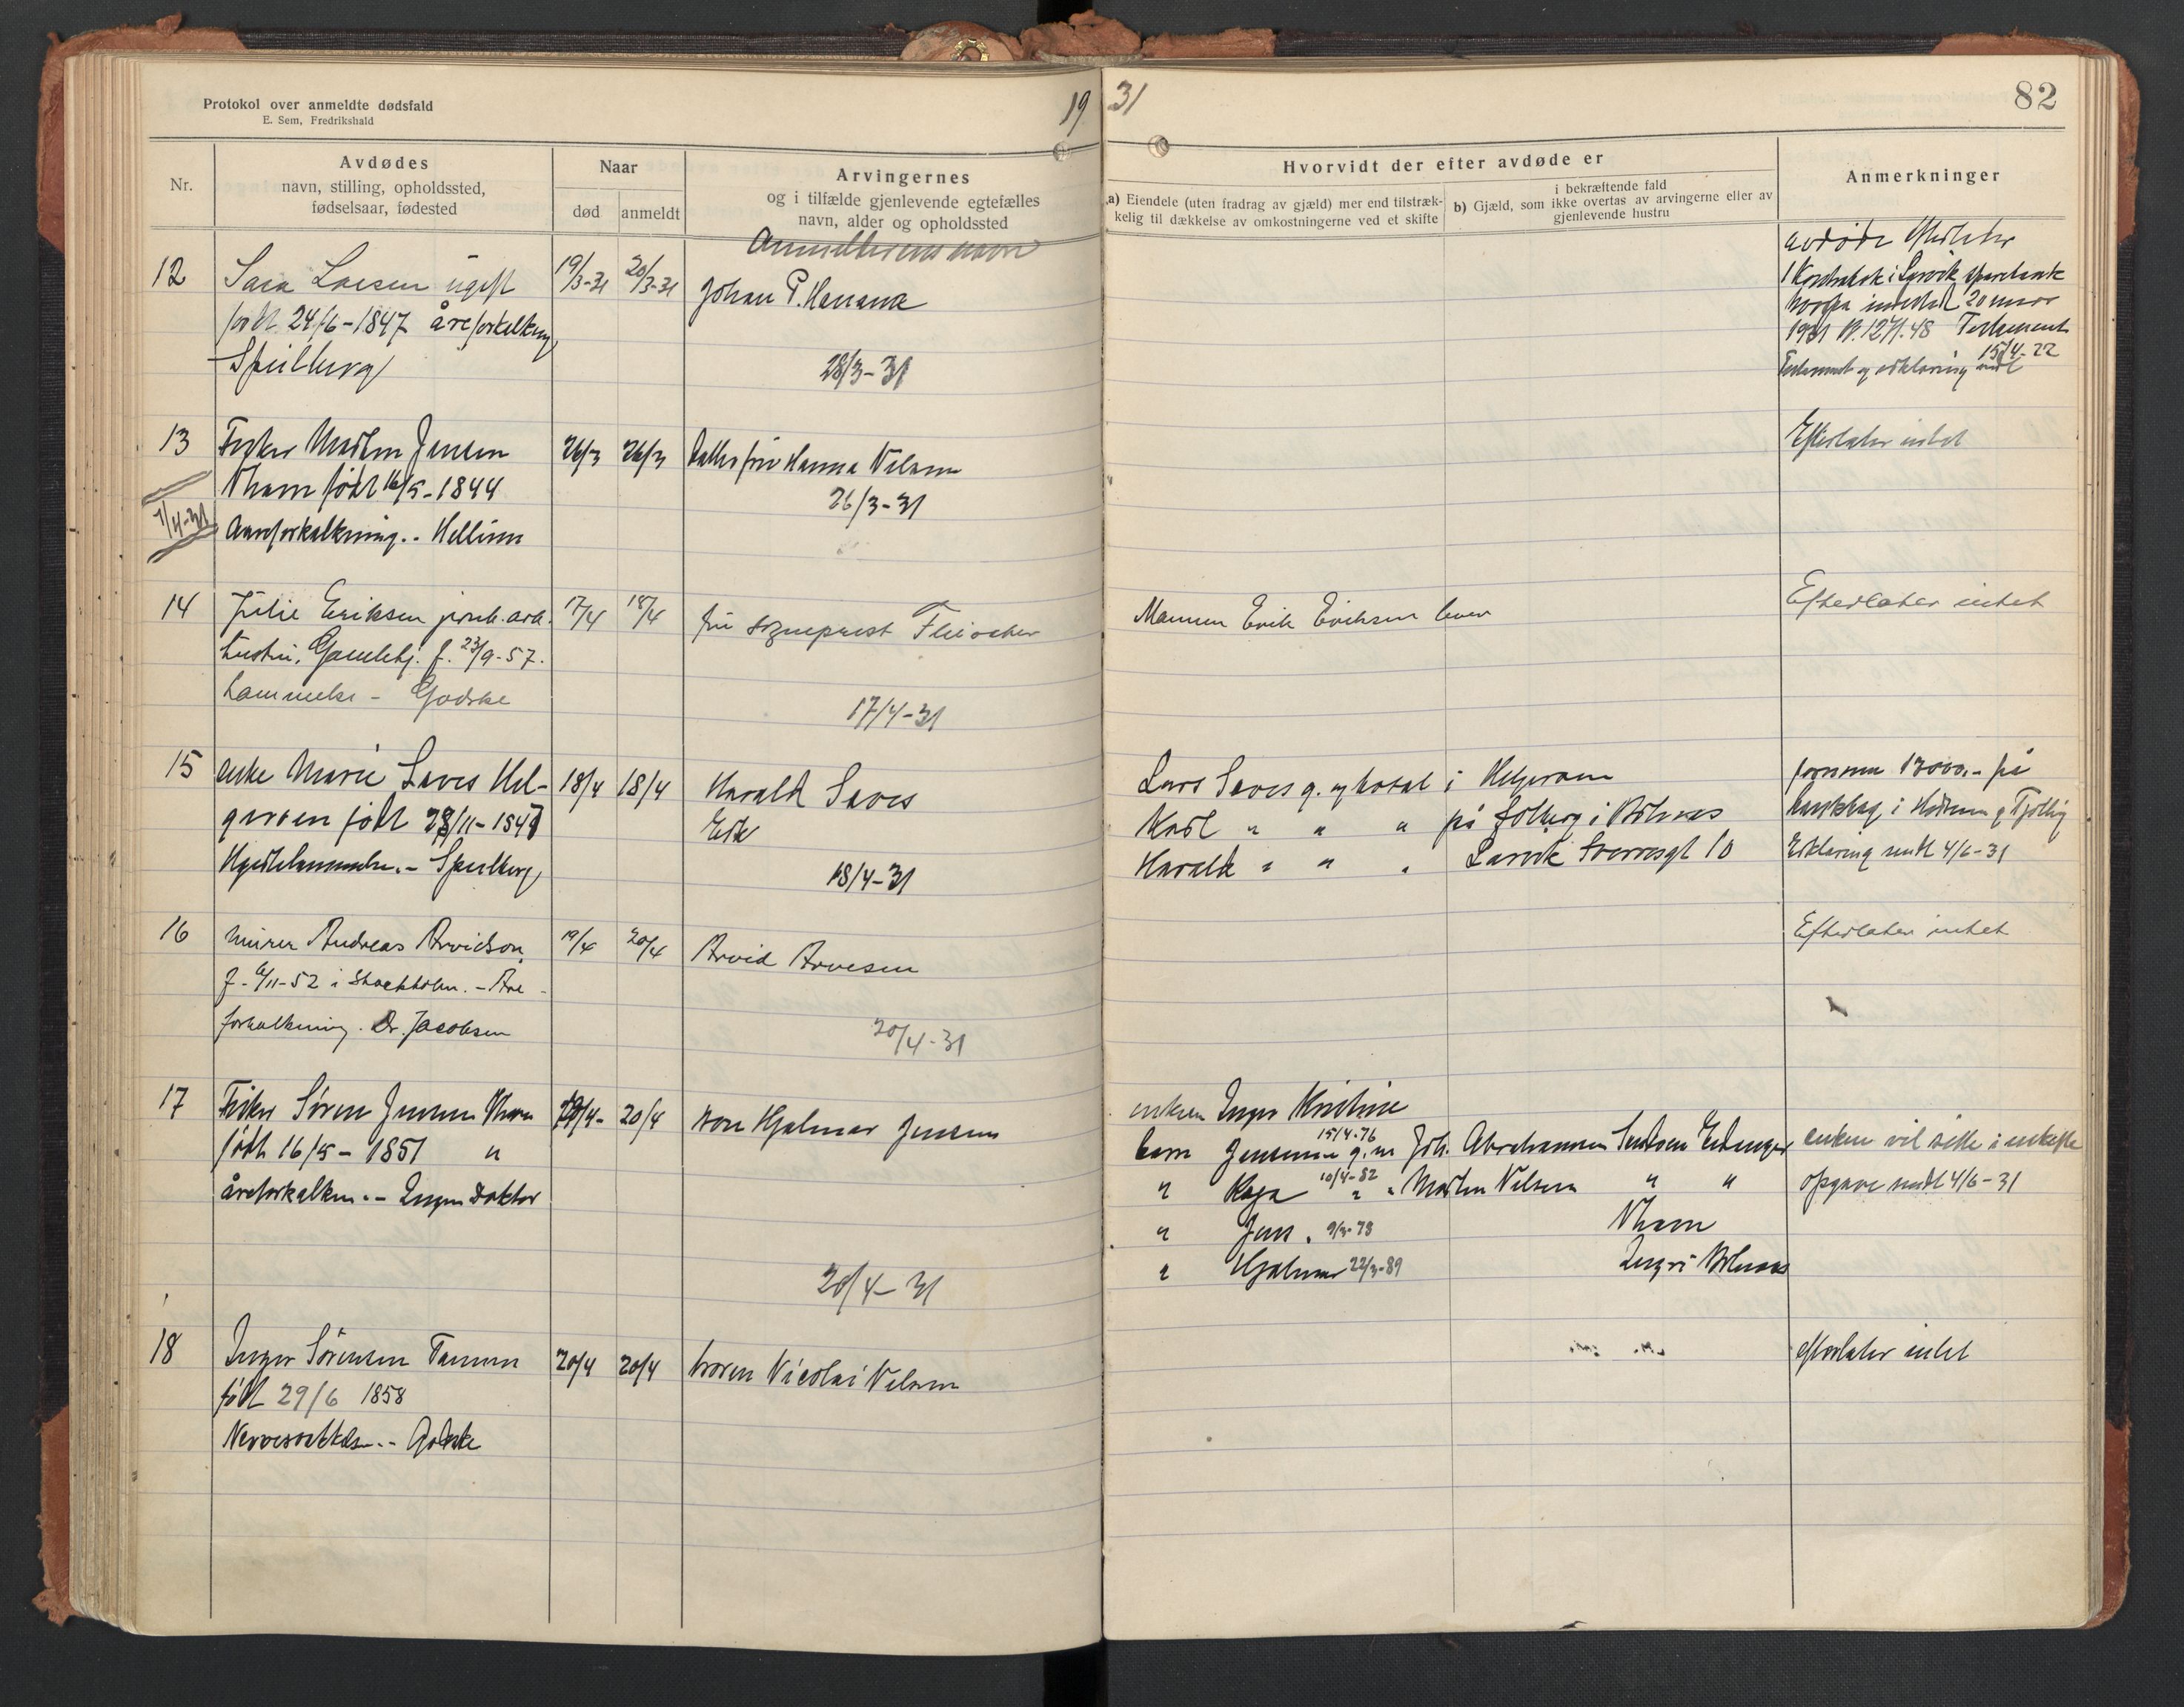 Protokol over anmeldte dødsfald
E. Sem, Fredrikshald
1931
82
Nr.
Avdødes
navn, stilling, opholdssted,
fødselsaar, fødested
Naar
død
anmeldt
Arvingernes
og i tilfælde gjenlevende egtefælles
navn, alder og opholdssted
Hvorvidt der efter avdøde er
a) Eiendele (uten fradrag av gjæld) mer end tilstræk-
kelig til dækkelse av omkostningerne ved et skifte
b) Gjæld, som i bekræftende fald ikke overtas av arvingerne eller av gjenlevende hustru
Anmerkninger
Anmelderens navn
12 Sara Larsen ugift 19/3-31 20/3-31 Johan P. Hansen
født 24/6-1847 åreforkalkning
Speilberg 28/3-31
avdøde efterlater
1 Kontrabok i Larvik Sparebank
hvorpaa indestod 20 mars
1931 Kr. 1271.48 Testament
15/4-22
Testament og erklæring sendt
13 Fisker Morten Jensen 26/3 26/3 datter fru Hanna Nilsen Efterlater intet
Nham født 16/5-1844 26/3-31
1/4-31
Aareforkalkning.- Hellinn
14 Julie Eriksen jernb.arb. 17/4 18/4 fru sogneprest Fleischer Mannen Erik Eriksen lever Efterlater intet
hustru, Gamlehj. f. 23/9-57.
Lammelse - Godske 17/4-31
15 enke Marie Saves Hel- 18/4 18/4 Harald Saves Lars Saves g. og bosat i Helgeroen formuen 13000.- på
geroen født 28/11-1847 Karl " " " på Solberg i Brunlanes
Hjertelammelse.- Speilberg 18/4-31 Harald " " " Larvik Sverresgt 10 Erklæring sendt 4/6-31
16 murer Andreas Arvidson, 19/4 20/4 Arvid Arvesen Efterlater intet
f. 6/11-52 i Stockholm. - Åre-
forkalkning. Dr. Jacobsen 20/4-31
17 Fisker Søren Jensen Nham 19/4- 20/4 sønn Hjalmar Jensen enken Inger Kristine
født 16/5-1851 " barn Jensine 15/4-76 g.m. Joh. Abrahamsen enken vil sitte i uskifte
åreforkalkn.- Ingen Doktor " Kaja 10/4-82 " " Morten Nilsen " " opgave sendt 4/6-31
" Jens . 9/3-78 Nham
" Hjalmar 22/3-89
20/4-31
18 Inger Sørensen Tanum 20/4 20/4 broren Nicolai Nilsen efterlater intet
født 29/6 1858
Nervesvekkelse.- Godske